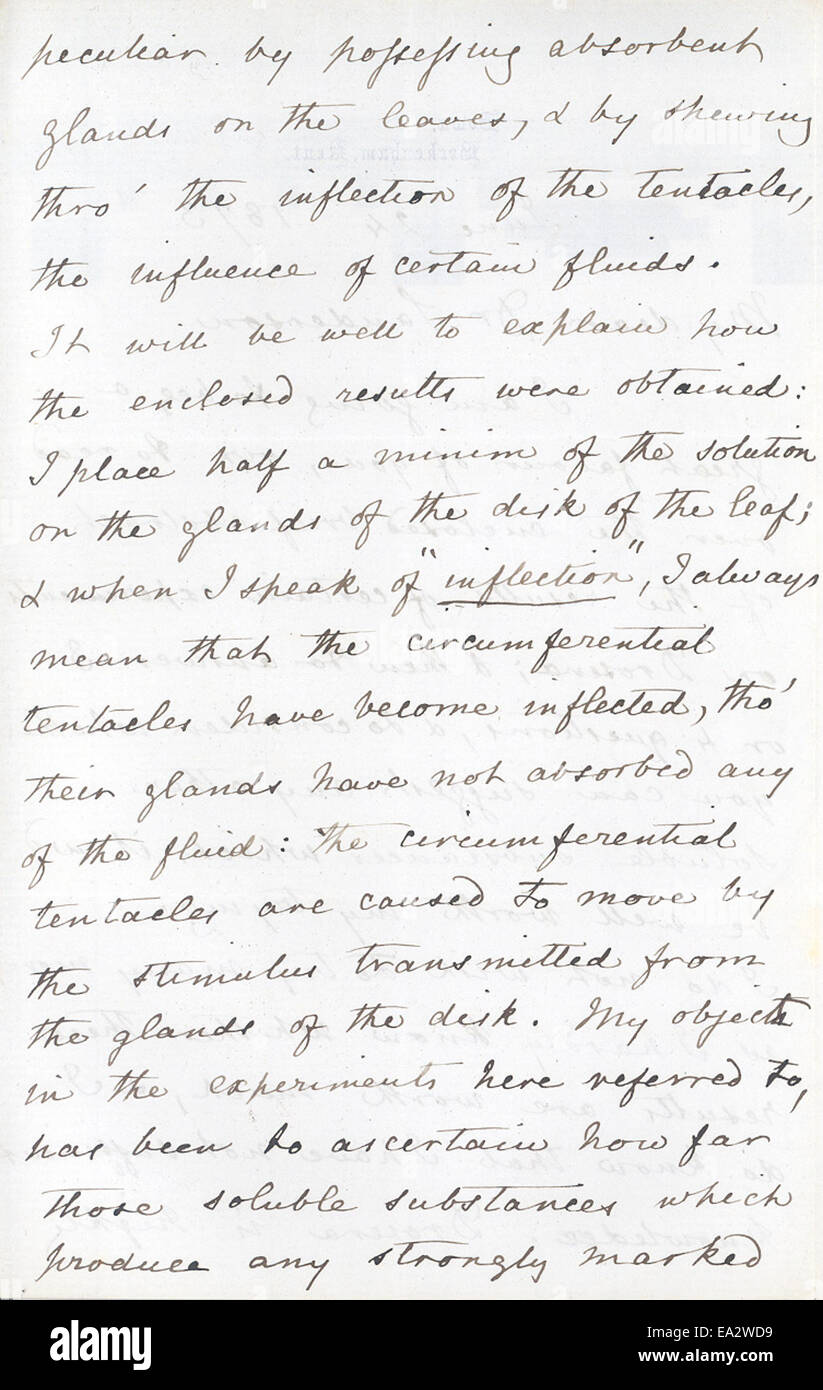 peculiar by possessing absorbent
glands on the leaves, & by shewing
thro' the inflection of the tentacles,
the influence of certain fluids.
It will be well to explain how
the enclosed results were obtained:
I place half a minim of the solution
on the glands of the disk of the leaf;
& when I speak of "inflection", I always
mean that the circumferential
tentacles have become inflected, tho'
their glands have not absorbed any
of the fluid: the circumferential
tentacles are caused to move by
the stimulus transmitted from
the glands of the disk. My object
in the experiments here referred to,
has been to ascertain how far
those soluble substances which
produce any strongly marked
alamy
Image ID: EA2WD9
www.alamy.com